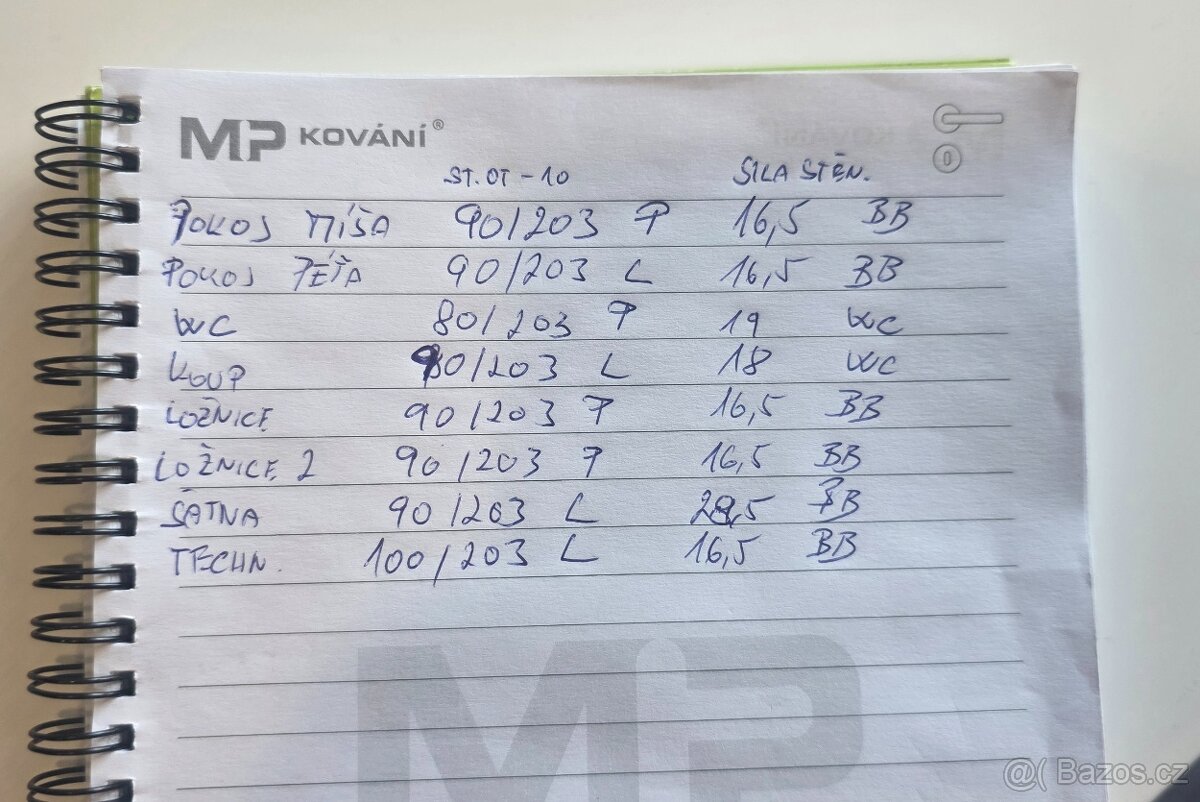 MP KOVÁNÍ®
ST. OT - 10 SILA STĚN.
POKOJ MÍŠA 90/203 P 16,5 BB
POKOJ PÉŤA 90/203 L 16,5 BB
WC 80/203 P 19 WC
KOUP 90/203 L 18 WC
LOŽNICE 90/203 P 16,5 BB
LOŽNICE 2 90/203 P 16,5 BB
ŠATNA 90/203 L BB
TECHN. 100/203 L 16,5 BB
MP
@( Bazos.cz